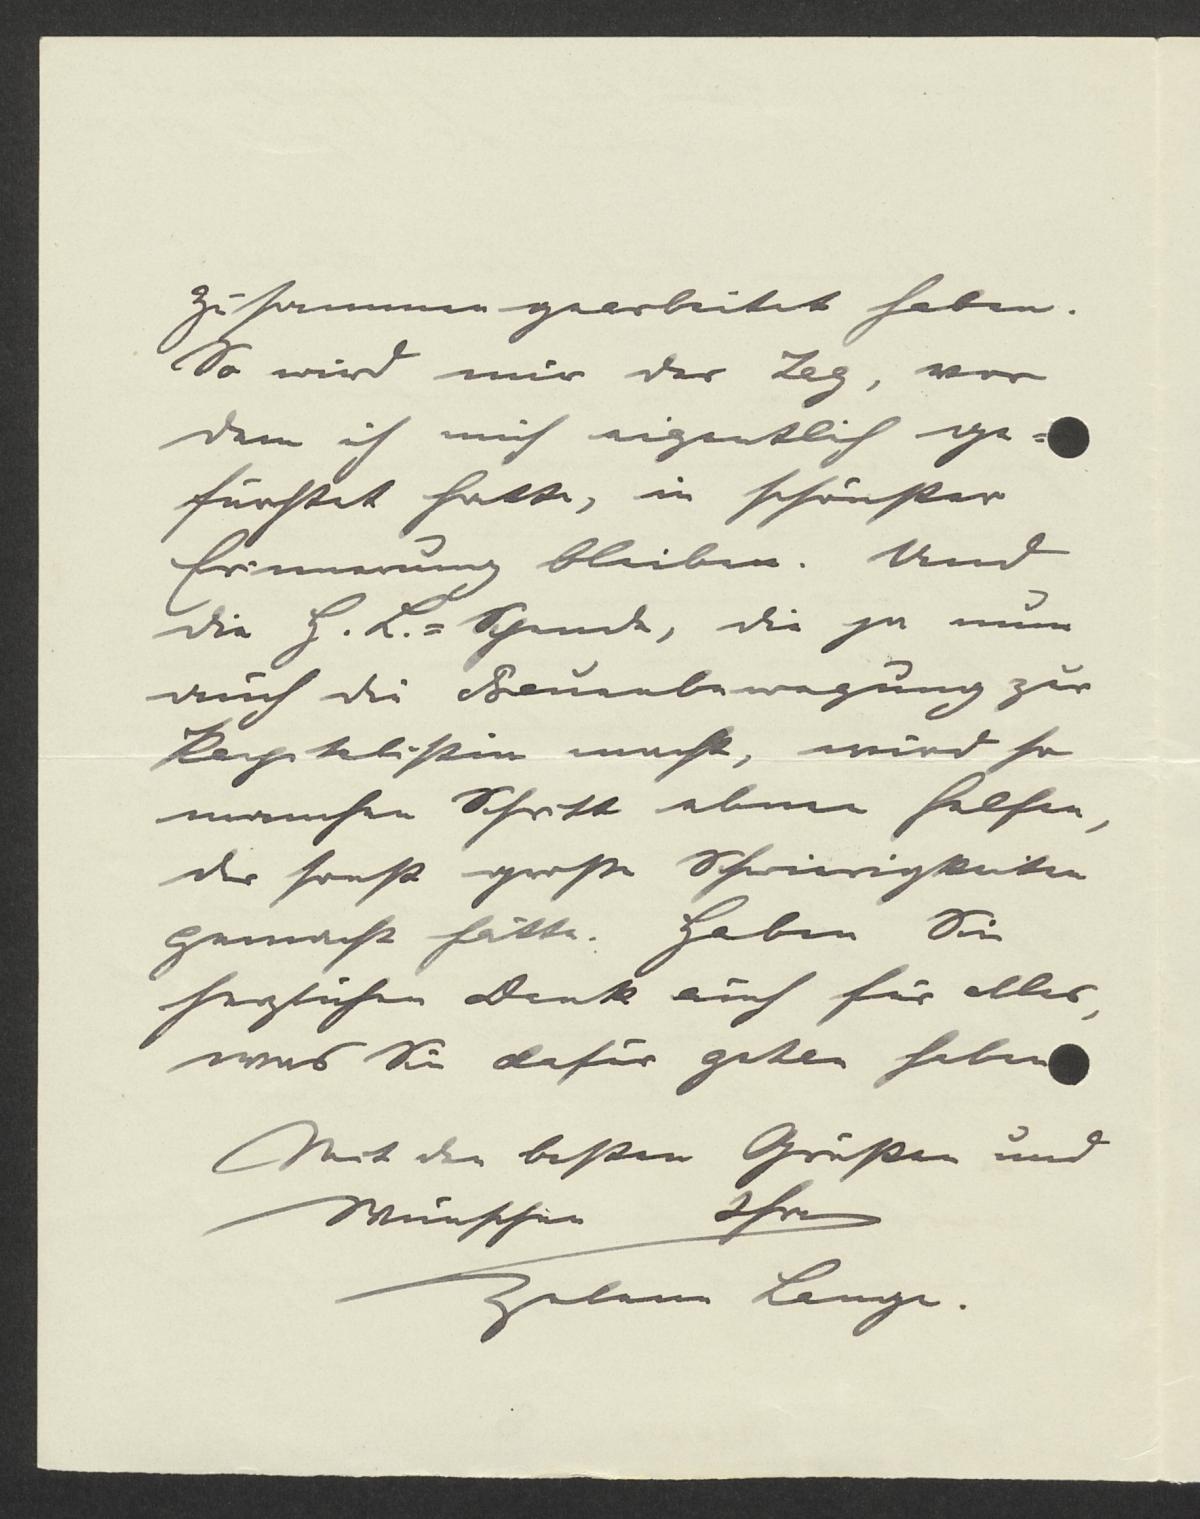 zusammengearbeitet haben.
So wird mir der Tag, vor
dem ich mich eigentlich ge=
fürchtet hatte, in schönster
Erinnerung bleiben. Und
die H. L.= Spende, die ja nun
auch die Frauenbewegung zur
Kapitalistin macht, wird so
manchen Schritt ebnen helfen,
der sonst große Schwierigkeiten
gemacht hätte. Haben Sie
herzlichen Dank auch für alles,
was Sie dafür getan haben
Mit den besten Grüßen und
Wünschen Ihre
Helene Lange.